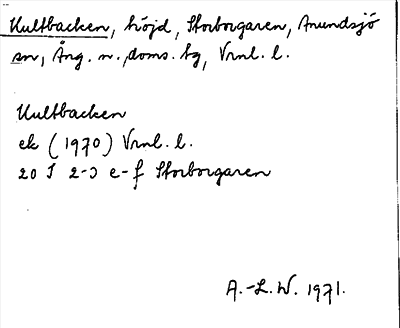 Kultbacken, höjd, Storborgaren, Anundsjö
sn, Ång. n. doms. tg, Vrnl. l.
Kultbacken
ek (1970) Vrnl. l.
20 I 2-3 e-f Storborgaren
A.-L.W. 1971.